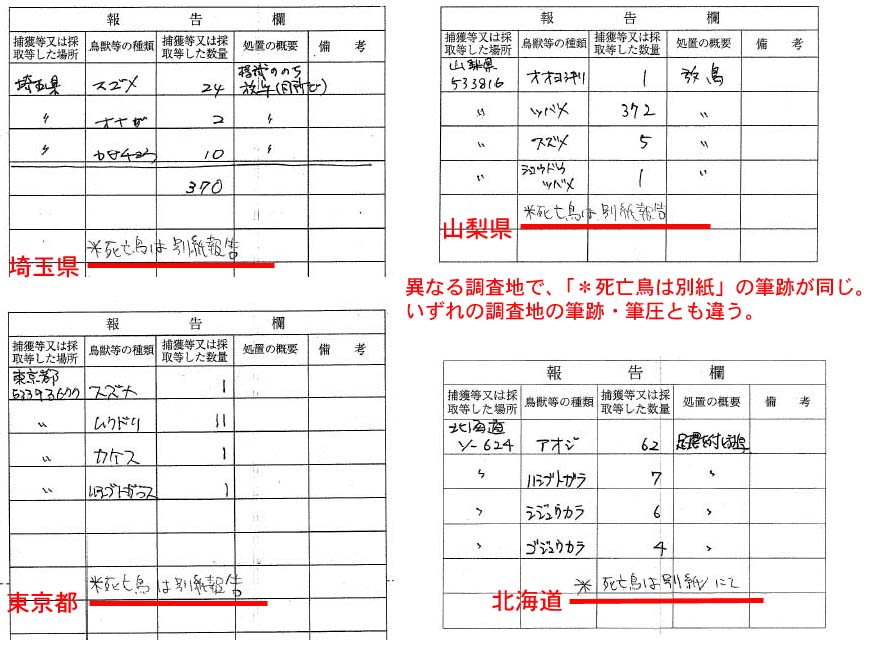 報告欄
捕獲等又は採取等した場所 鳥獣等の種類 捕獲等又は採取等した数量 処置の概要 備考
埼玉県 スズメ 24
〃 オナガ 2 〃
〃 カワラヒワ 10 〃
370
*死亡鳥は別紙報告
埼玉県
報告欄
捕獲等又は採取等した場所 鳥獣等の種類 捕獲等又は採取等した数量 処置の概要 備考
山梨県 533816 オオヨシキリ 1 放鳥
〃 ツバメ 372 〃
〃 スズメ 5 〃
〃 ショウドウツバメ 1 〃
*死亡鳥は別紙報告
山梨県
異なる調査地で、「*死亡鳥は別紙」の筆跡が同じ。
いずれの調査地の筆跡・筆圧とも違う。
報告欄
捕獲等又は採取等した場所 鳥獣等の種類 捕獲等又は採取等した数量 処置の概要 備考
東京都 スズメ 1
〃 ムクドリ 11
〃 カケス 1
〃 ハシブトガラス 1
*死亡鳥は別紙報告
東京都
報告欄
捕獲等又は採取等した場所 鳥獣等の種類 捕獲等又は採取等した数量 処置の概要 備考
北海道 ソ-624 アオジ 62
〃 ハシブトガラ 7 〃
〃 シジュウカラ 6 〃
〃 ゴジュウカラ 4 〃
* 死亡鳥は別紙にて
北海道